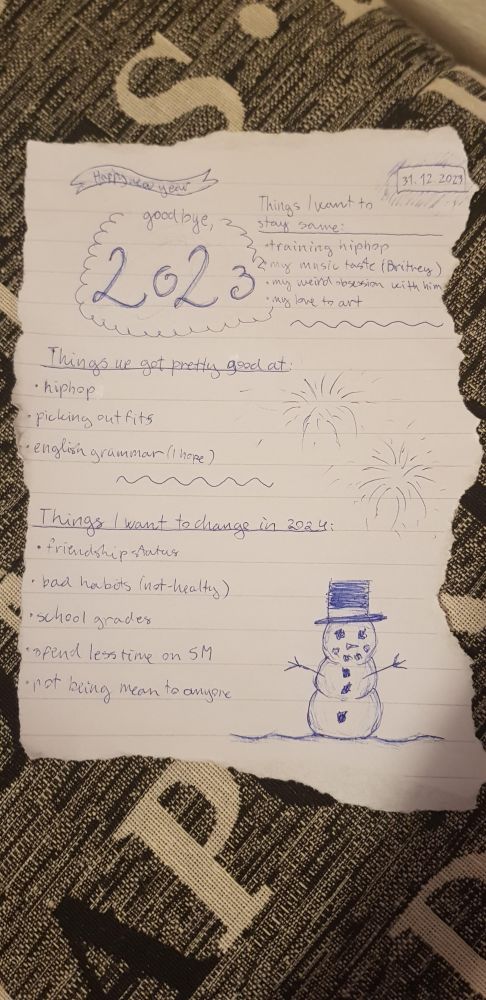 Happy new year
31.12.2023
good bye,
2023
Things I want to
stay same:
• training hiphop
• my music taste (Britney)
• my weird obsession with him
• my love to art
Things we got pretty good at:
• hiphop
• picking outfits
• english grammar (I hope)
Things I want to change in 2024:
• friendship status
• bad habits (not-healthy)
• school grades
• spend less time on SM
• not being mean to anyone